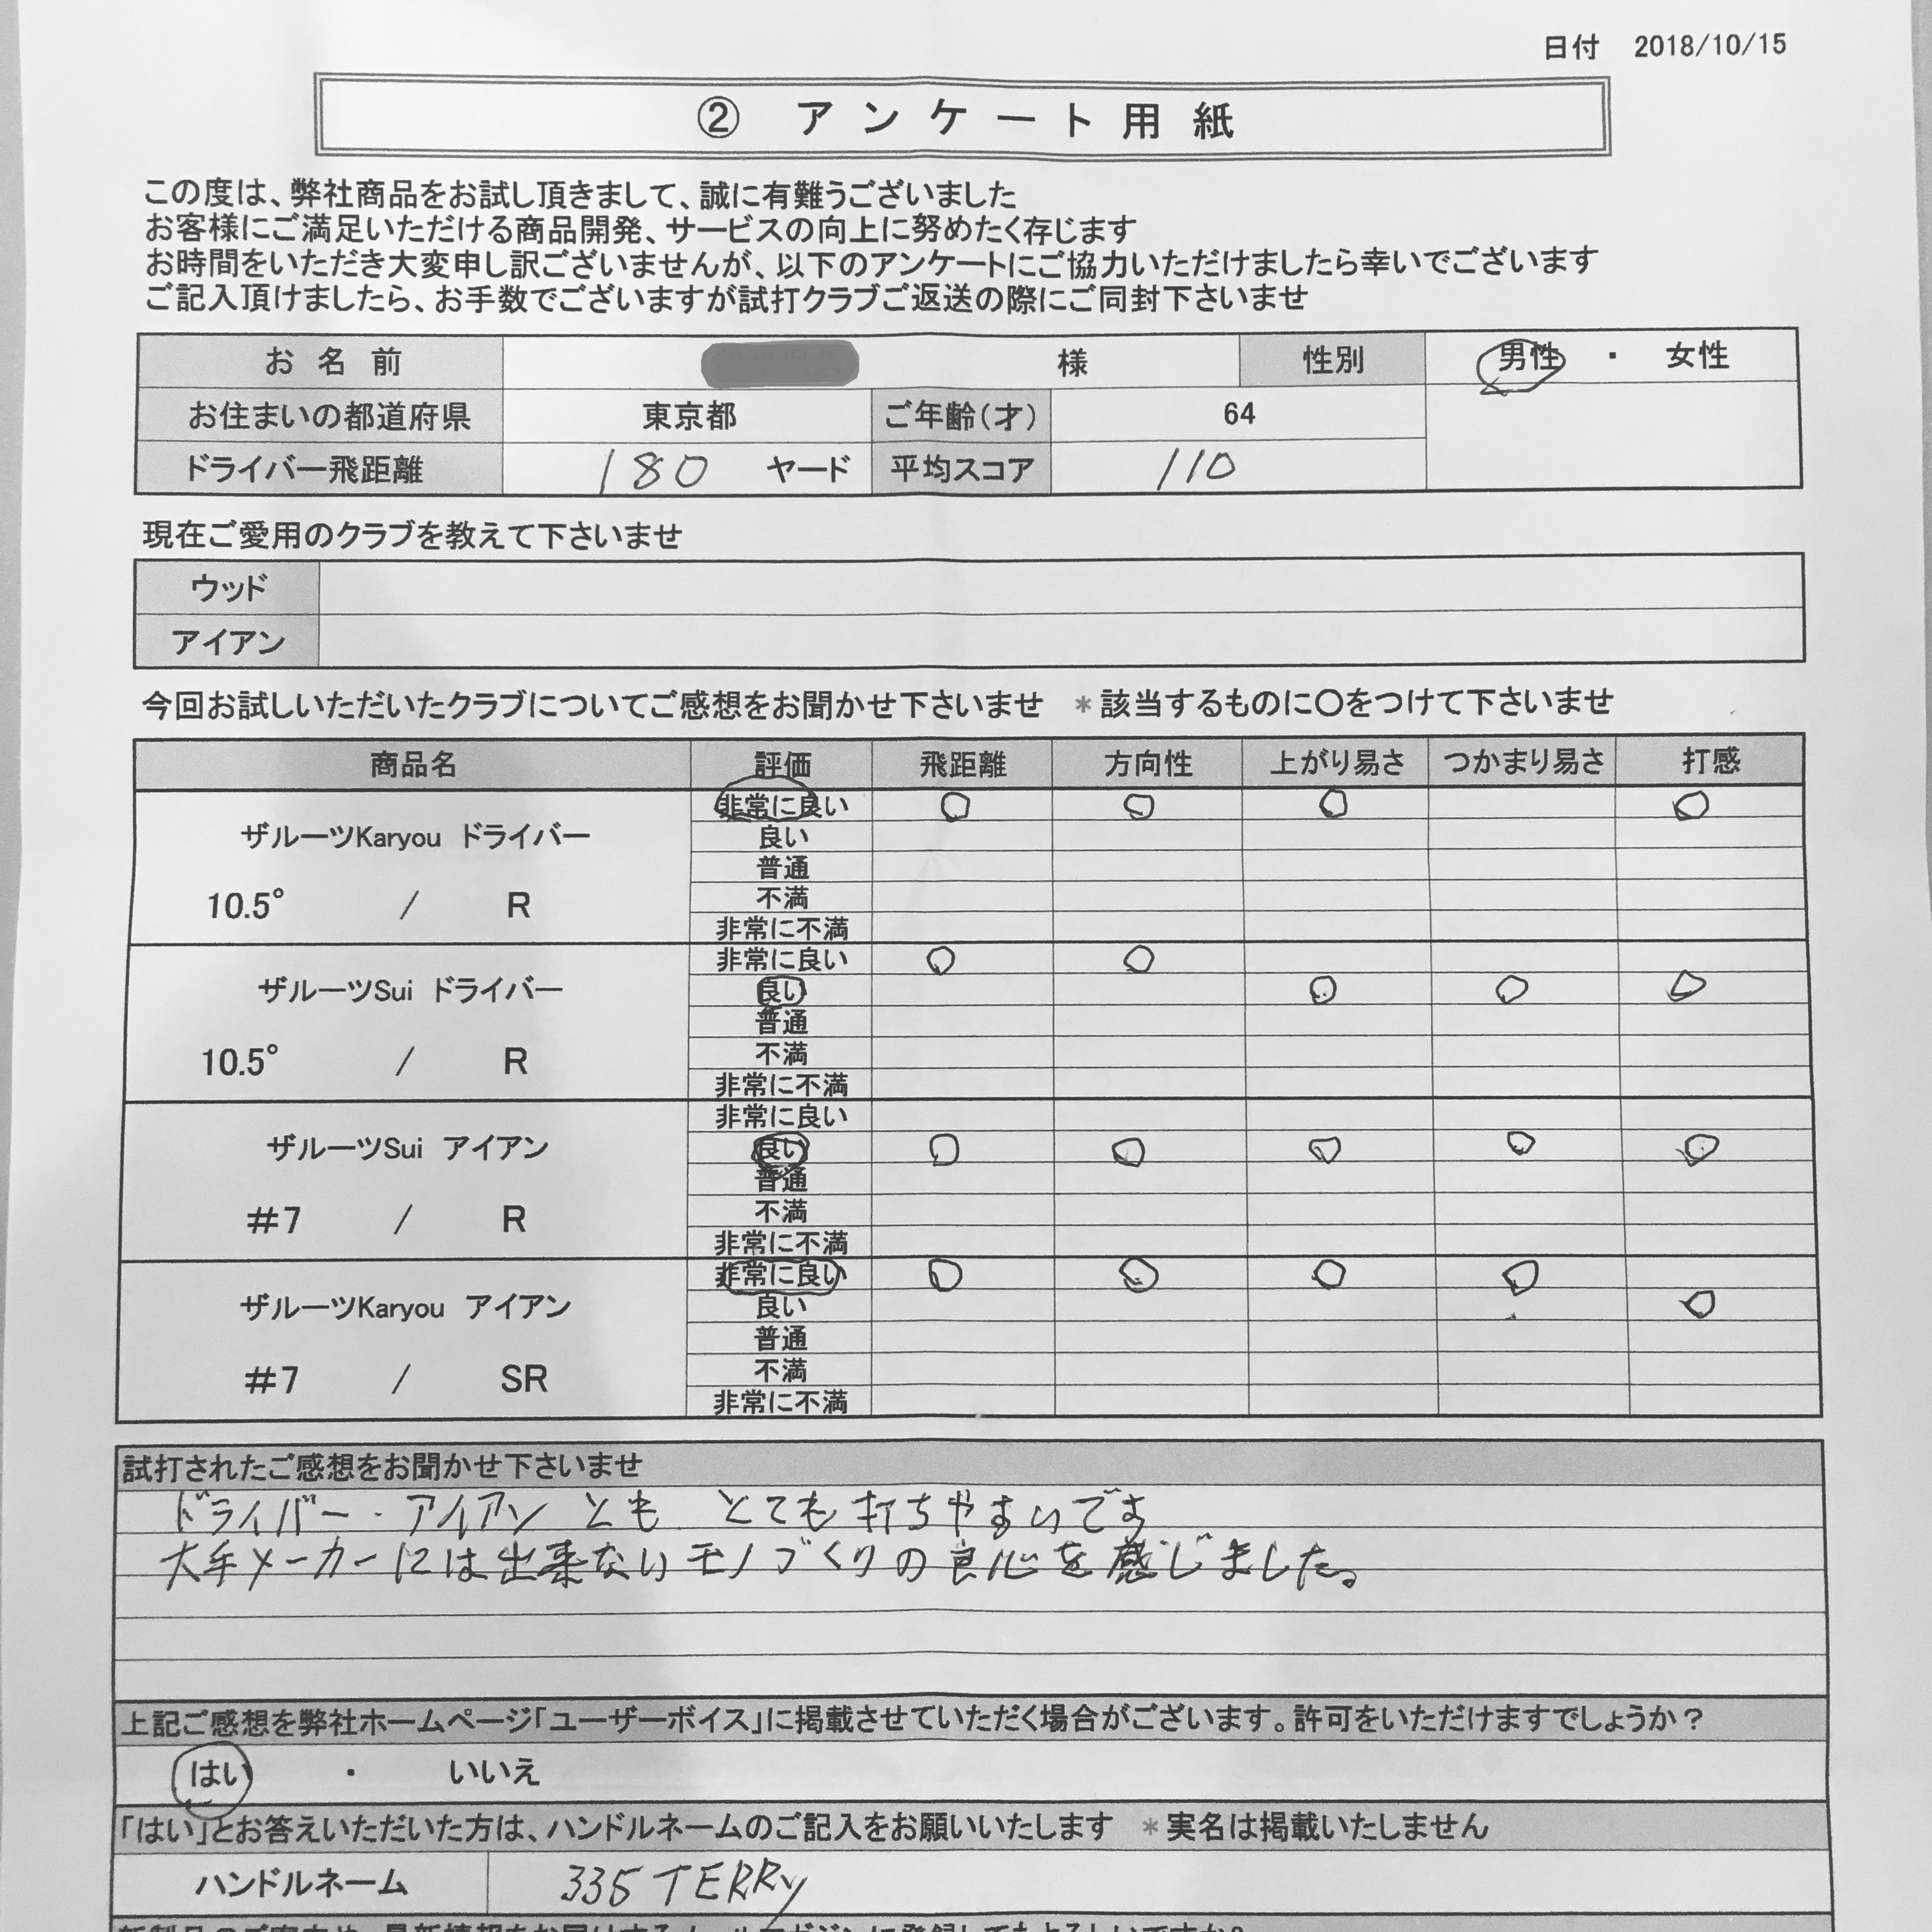 日付 2018/10/15
② アンケート用紙
この度は、弊社商品をお試し頂きまして、誠に有難うございました
お客様にご満足いただける商品開発、サービスの向上に努めたく存じます
お時間をいただき大変申し訳ございませんが、以下のアンケートにご協力いただけましたら幸いでございます
ご記入頂けましたら、お手数でございますが試打クラブご返送の際にご同封下さいませ
お名前 様 性別 男性 ・ 女性
お住まいの都道府県 東京都 ご年齢(才) 64
ドライバー飛距離 180 ヤード 平均スコア 110
現在ご愛用のクラブを教えて下さいませ
ウッド
アイアン
今回お試しいただいたクラブについてご感想をお聞かせ下さいませ *該当するものに〇をつけて下さいませ
商品名 評価 飛距離 方向性 上がり易さ つかまり易さ 打感
ザルーツKaryou ドライバー
10.5° / R
非常に良い 〇 〇 〇 〇
良い
普通
不満
非常に不満
ザルーツSui ドライバー
10.5° / R
非常に良い 〇 〇
良い 〇 〇 〇
普通
不満
非常に不満
ザルーツSui アイアン
#7 / R
非常に良い
良い 〇 〇 〇 〇 〇
普通
不満
非常に不満
ザルーツKaryou アイアン
#7 / SR
非常に良い 〇 〇 〇 〇
良い 〇
普通
不満
非常に不満
試打されたご感想をお聞かせ下さいませ
ドライバー・アイアンとも とても打ちやすいです
大手メーカーには出来ないモノづくりの良心を感じました。
上記ご感想を弊社ホームページ「ユーザーボイス」に掲載させていただく場合がございます。許可をいただけますでしょうか?
はい ・ いいえ
「はい」とお答えいただいた方は、ハンドルネームのご記入をお願いいたします *実名は掲載いたしません
ハンドルネーム 335 TERRY